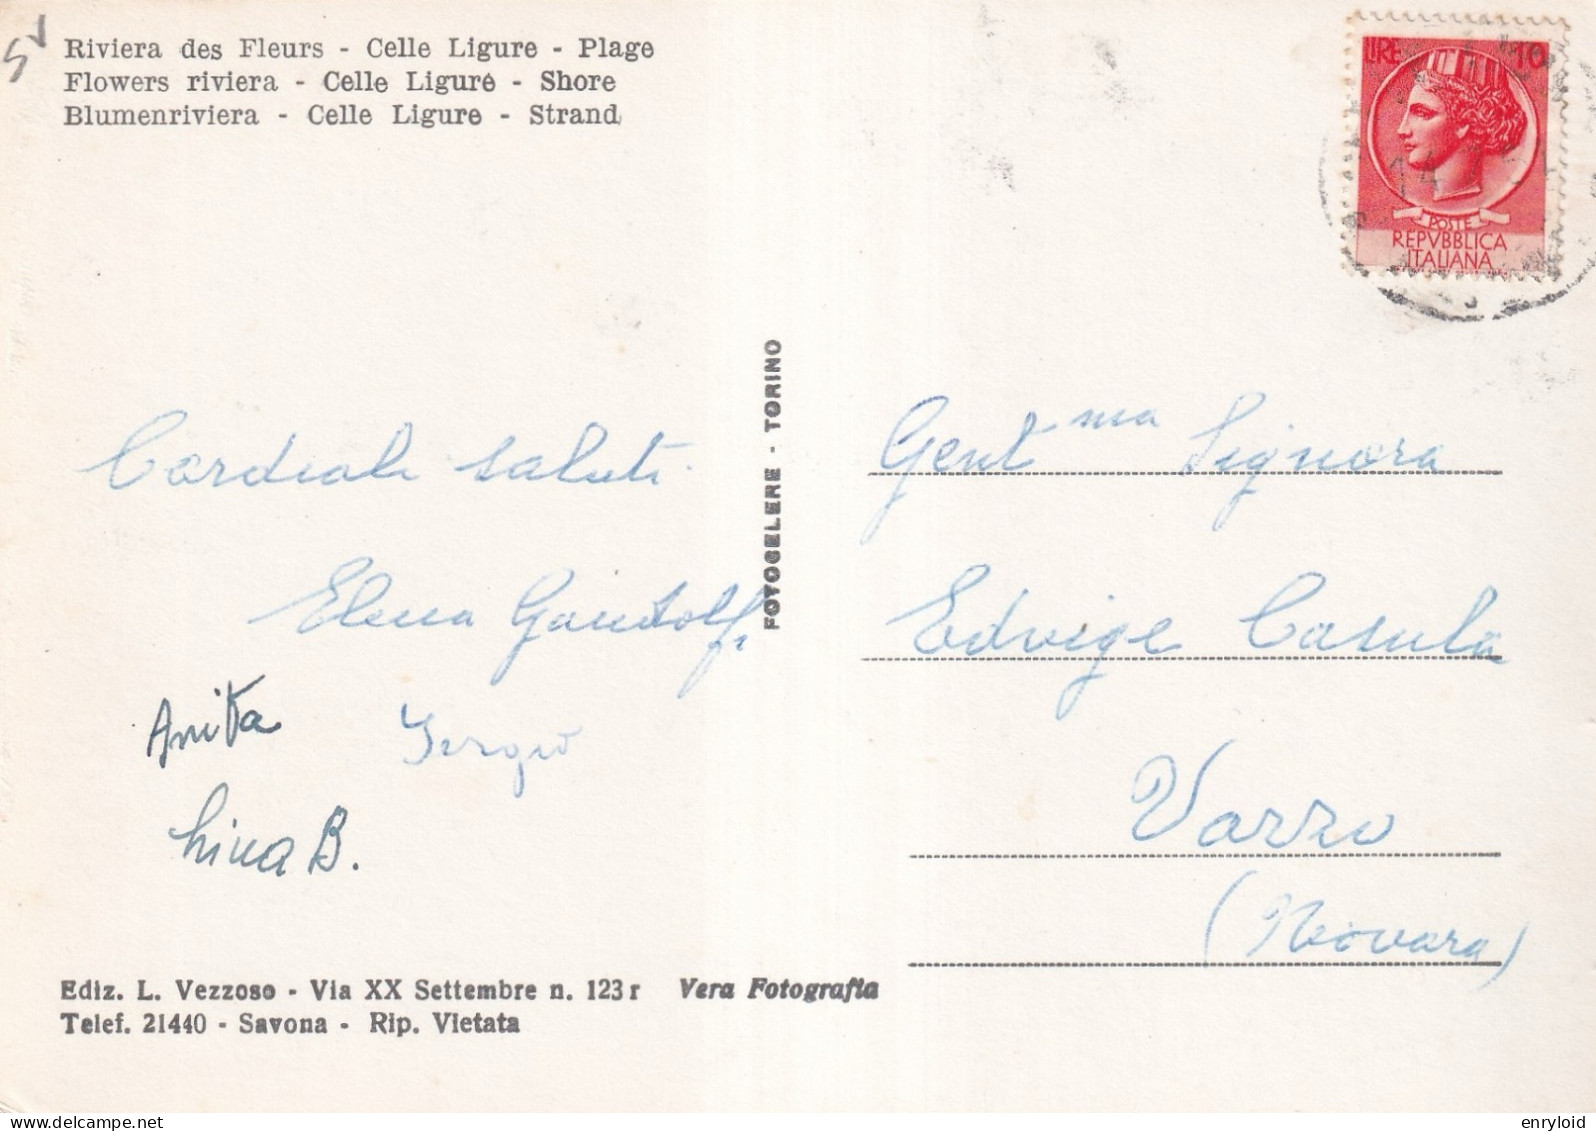 SV
Riviera des Fleurs - Celle Ligure - Plage
Flowers riviera - Celle Ligure - Shore
Blumenriviera - Celle Ligure - Strand
LIRE 10
POSTE
REPVBBLICA
ITALIANA
Cordiali saluti
Elena Gandolfi
Anita Sergio
Lina B.
FOTOCELERE - TORINO
Gent ma Signora
Edvige Casula
Varzo
(Novara)
Ediz. L. Vezzoso - Via XX Settembre n. 123 r Vera Fotografia
Telef. 21440 - Savona - Rip. Vietata
enryloid